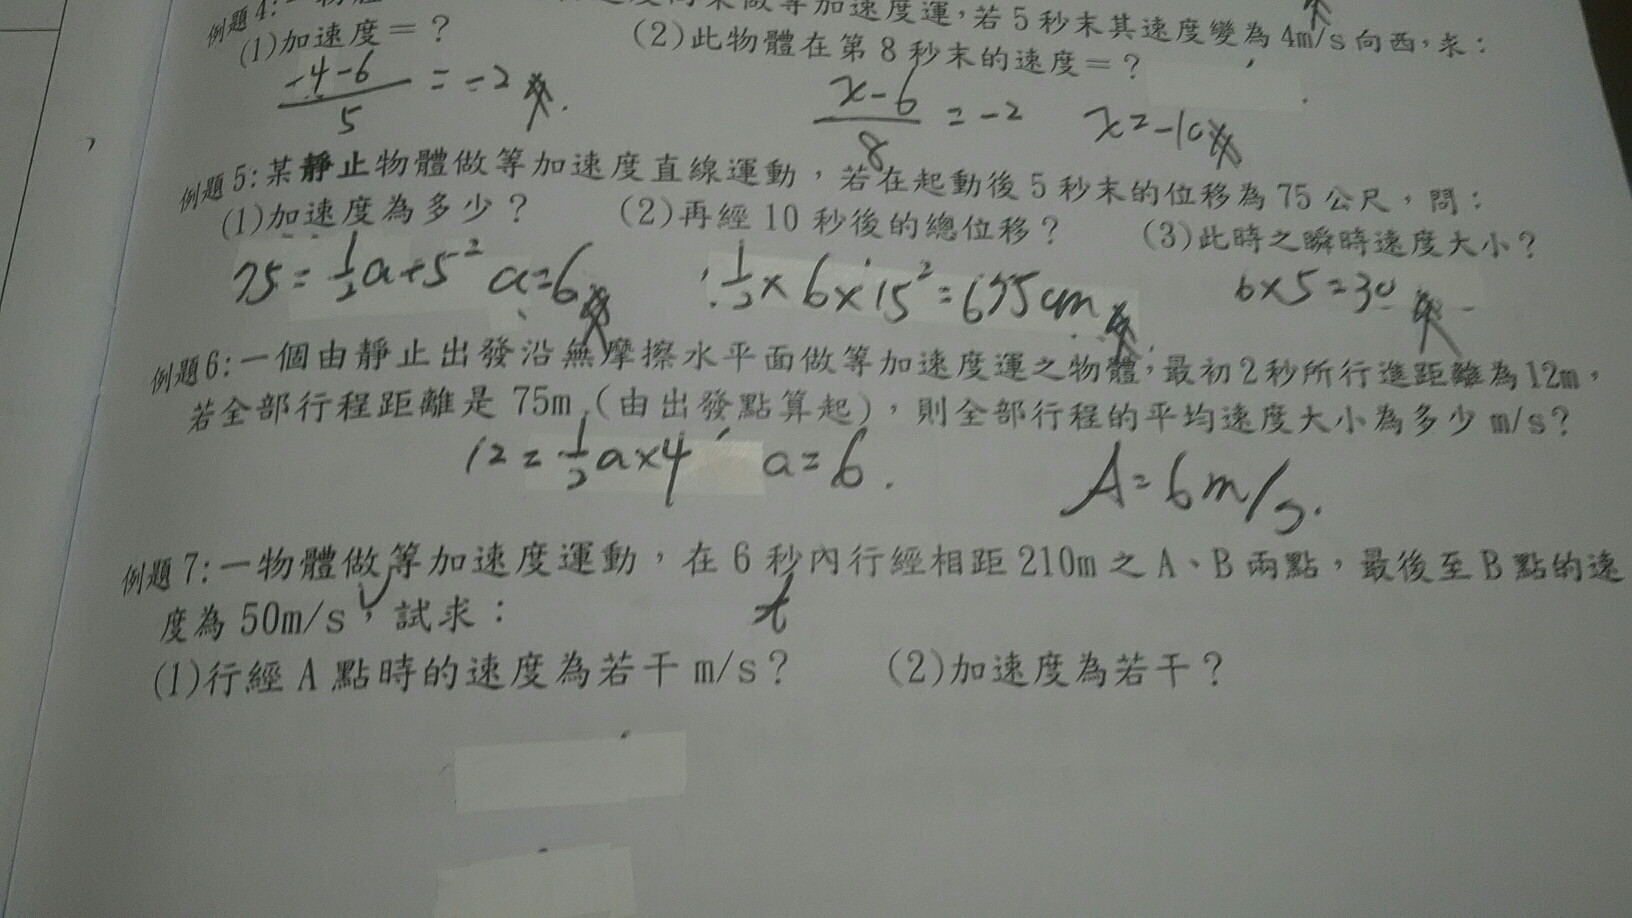 例題4:一物體 做等加速度運,若5秒末其速度變為4m/s向西,求:
(1)加速度=? (2)此物體在第8秒末的速度=?
-4-6/5 = -2 x-6/8 = -2 x=-10
例題5:某靜止物體做等加速度直線運動,若在起動後5秒末的位移為75公尺,問:
(1)加速度為多少? (2)再經10秒後的總位移? (3)此時之瞬時速度大小?
75=1/2a×5² a=6 1/2×6×15²=675cm 6×5=30
例題6:一個由靜止出發沿無摩擦水平面做等加速度運之物體,最初2秒所行進距離為12m,
若全部行程距離是75m(由出發點算起),則全部行程的平均速度大小為多少m/s?
12=1/2a×4 a=6. A=6m/s.
例題7:一物體做等加速度運動,在6秒內行經相距210m之A、B兩點,最後至B點的速
度為50m/s,試求: t
(1)行經A點時的速度為若干m/s? (2)加速度為若干?